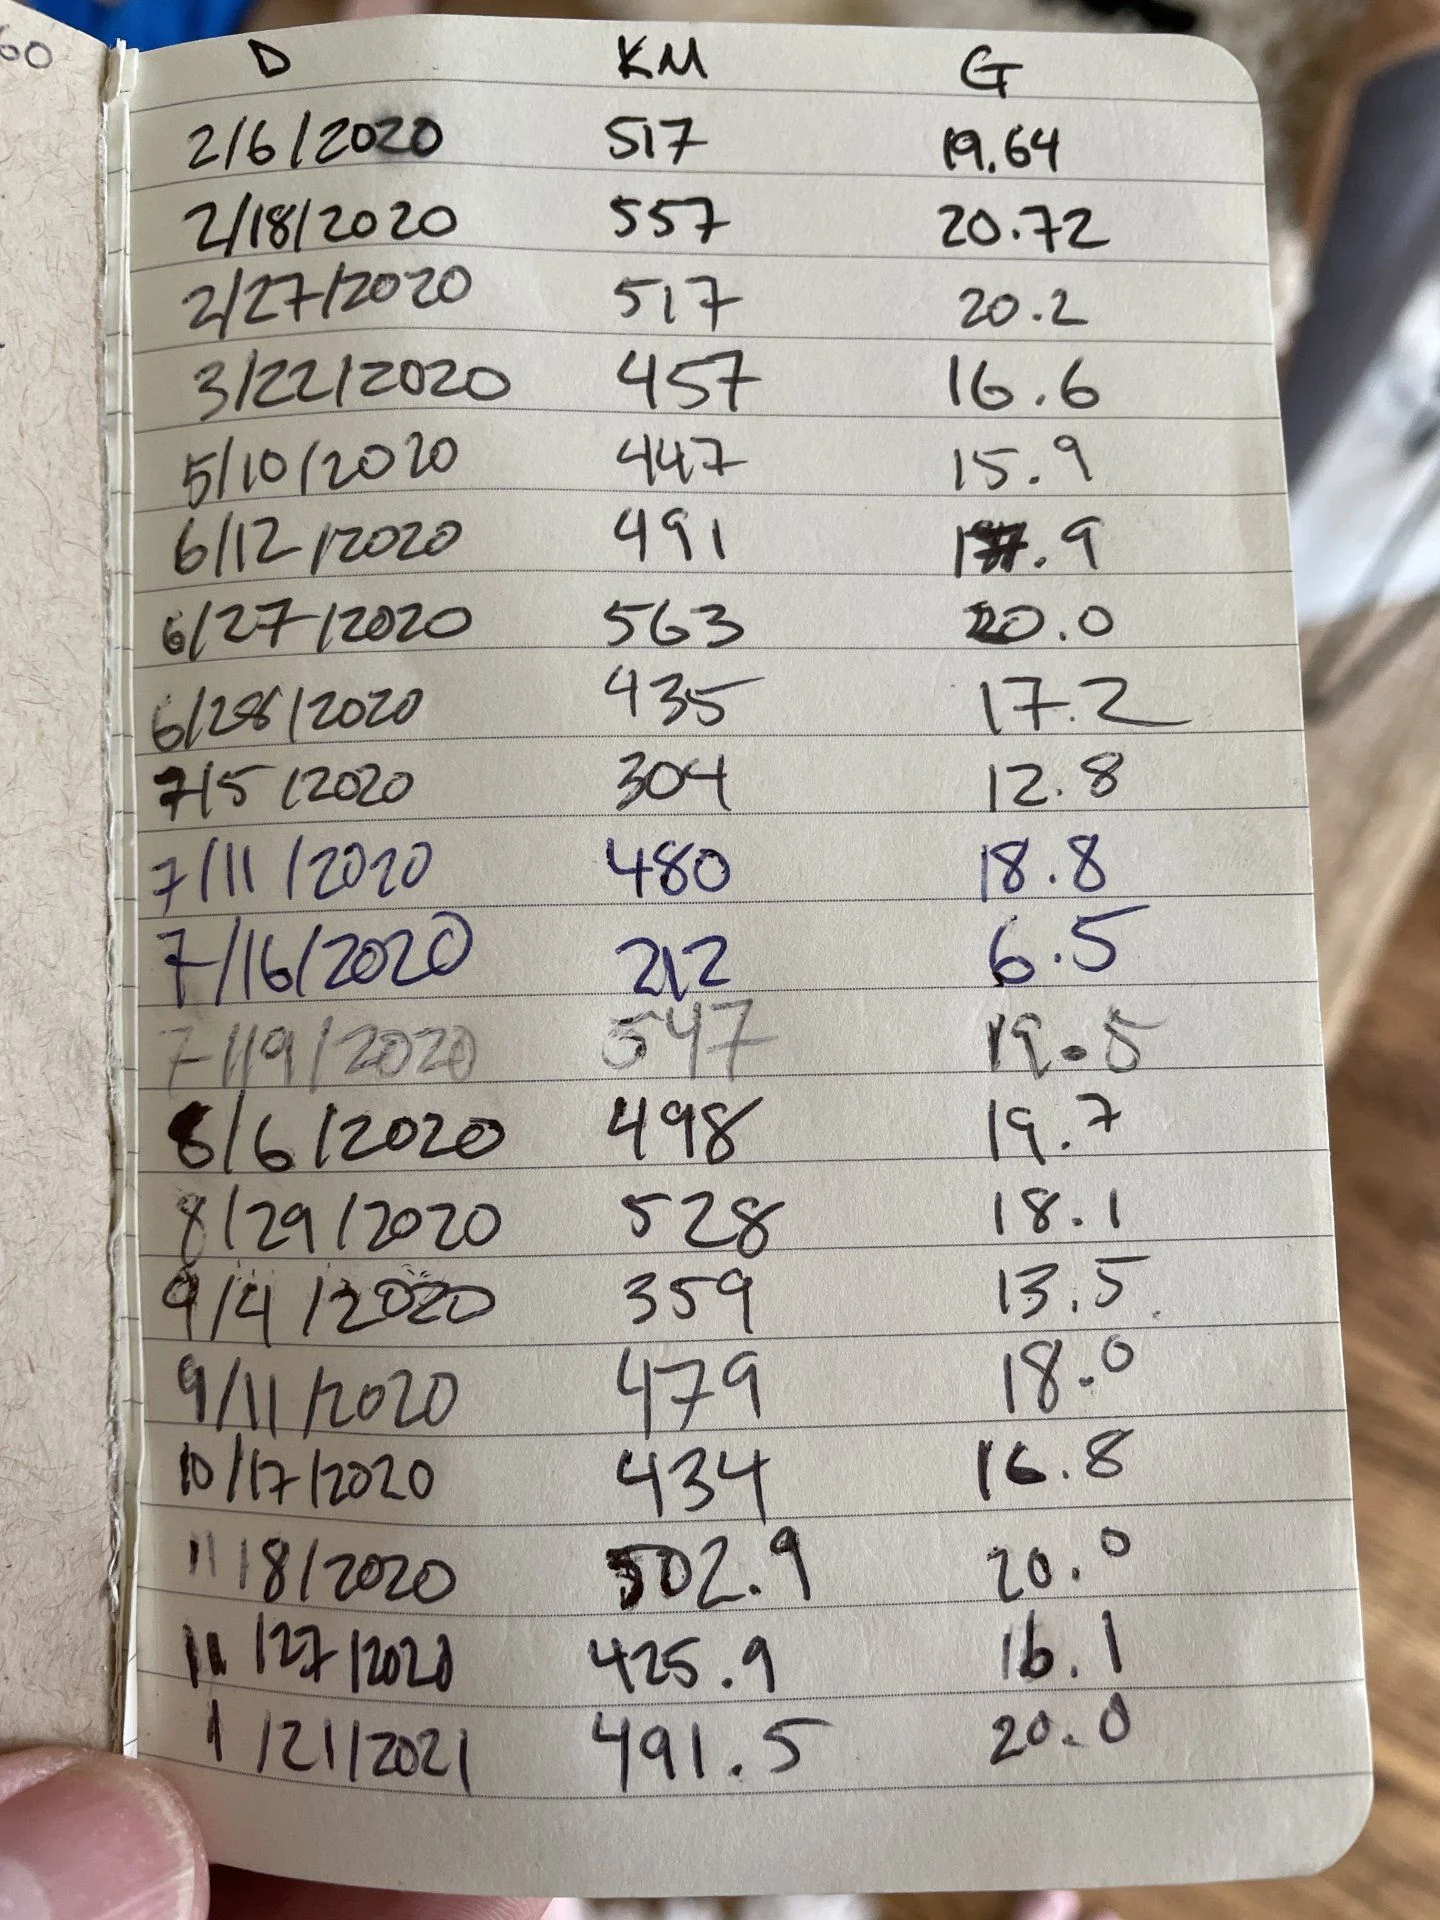 60
D KM G
2/6/2020 517 19.64
2/18/2020 557 20.72
2/27/2020 517 20.2
3/22/2020 457 16.6
5/10/2020 447 15.9
6/12/2020 491 17.9
6/27/2020 563 20.0
6/28/2020 435 17.2
7/5/2020 304 12.8
7/11/2020 480 18.8
7/16/2020 212 6.5
7/19/2020 547 19.5
8/6/2020 498 19.7
8/29/2020 528 18.1
9/4/2020 359 13.5
9/11/2020 479 18.0
10/17/2020 434 16.8
11/8/2020 502.9 20.0
11/27/2020 425.9 16.1
1/21/2021 491.5 20.0